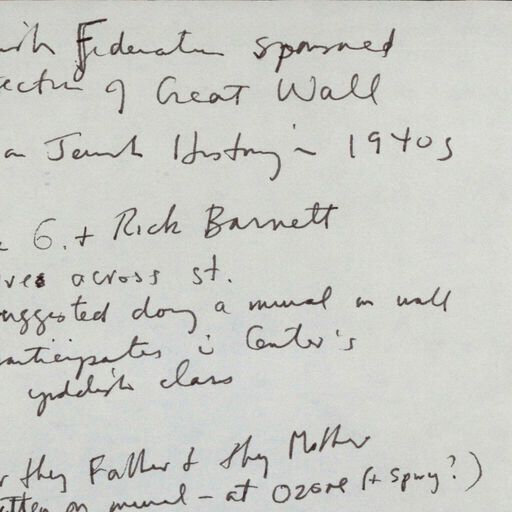 ish Federation sponsored
ection of Great Wall
an Jewish History in 1940s
G. + Rick Barnett
ves across st.
uggested doing a mural on wall
participates in Center's
yiddish class
thy Father & thy Mother
itten on mural - at Ozone (+ Spwy?)